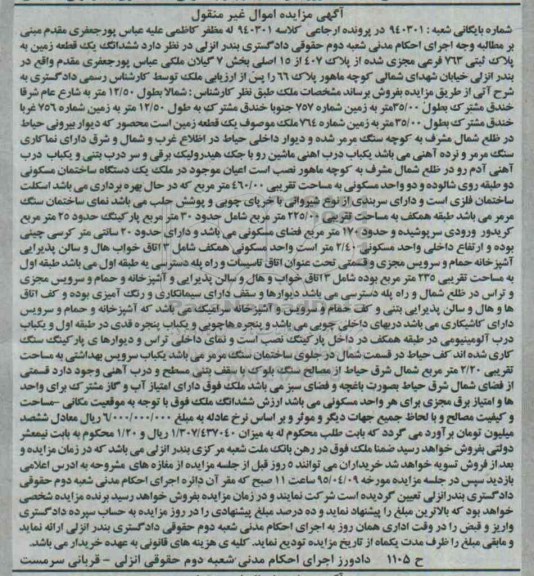 آگهی مزایده اموال غیر منقول
شماره بایگانی شعبه : ۹۴۰۳۰۱ در پرونده ارجاعی کلاسه ۹۴۰۳۰۱ له مظفر کاظمی علیه عباس پورجعفری مقدم مبنی
بر مطالبه وجه اجرای احکام مدنی شعبه دوم حقوقی دادگستری بندر انزلی در نظر دارد ششدانگ یک قطعه زمین به
پلاک ثبتی ۷۶۳ فرعی مجزی شده از پلاک ۴۰۷ از ۱۵ اصلی بخش ۷ گیلان ملکی عباس پورجعفری مقدم واقع در
بندر انزلی خیابان شهدای شمالی کوچه ماهور پلاک ۶۶ را پس از ارزیابی ملک توسط کارشناس رسمی دادگستری به
شرح آتی از طریق مزایده بفروش برساند مشخصات ملک طبق نظر کارشناس : شمالا بطول ۱۲/۵۰ متر به شارع عام شرقا
خندق مشترک بطول ۳۵/۰۰متر به زمین شماره ۷۵۷ جنوبا خندق مشترک به طول ۱۲/۵۰ متر به زمین شماره ۷۵۶ غربا
خندق مشترک بطول ۳۵/۰۰ متر به زمین شماره ۷۶۴ ملک موصوف یک قطعه زمین است محصور که دیوار بیرونی حیاط
در ظلع شمال مشرف به کوچه سنگ مرمر شده و دیوار داخلی حیاط در اظلاع غرب و شمال و شرق دارای نماکاری
سنگ مرمر و نرده آهنی می باشد یکباب درب اهنی ماشین رو با جک هیدرولیک برقی و سر درب بتنی و یکباب درب
آهنی آدم رو در ظلع شمال مشرف به کوچه ماهور نصب است اعیان موجود در ملک یک دستگاه ساختمان مسکونی
دو طبقه روی شالوده و دو واحد مسکونی به مساحت تقریبی ۴۶۰/۰۰ متر مربع که در حال بهره برداری می باشد اسکلت
ساختمان فلزی است و دارای سربندی از نوع شیروانی با خرپای چوبی و پوشش حلب می باشد نمای ساختمان سنگ
مرمر می باشد طبقه همکف به مساحت تقریبی ۲۲۵/۰۰ متر مربع شامل حدود ۳۰ متر مربع پارکینگ حدود ۲۵ متر مربع
کریدور ورودی سرپوشیده و حدود ۱۷۰ متر مربع فضای مسکونی می باشد و دارای حدود ۲۰ سانتی متر کرسی چینی
بوده و ارتفاع داخلی واحد مسکونی ۲/۴۰ متر است واحد مسکونی همکف شامل ۳اتاق خواب هال و سالن پذیرایی
آشپزخانه حمام و سرویس مجزی و قسمتی تحت عنوان اتاق تاسیسات و راه پله دسترسی به طبقه اول می باشد طبقه اول
به مساحت تقریبی ۲۳۵ متر مربع بوده شامل ۳اتاق خواب و هال و سالن پذیرایی و آشپزخانه و حمام و سرویس مجزی
و تراس در ظلع شمال و راه پله دسترسی می باشد دیوارها و سقف دارای سیمانکاری و رنگ آمیزی بوده و کف اتاق
ها و هال و سالن پذیرایی بتنی و کف حمام و سرویس و آشپزخانه سرامیک می باشد که آشپزخانه و حمام و سرویس
دارای کاشیکاری می باشد دربهای داخلی چوبی می باشد و پنجره هاچوبی و یکباب پنجره قدی در طبقه اول و یکباب
درب آلومینیومی در طبقه همکف در داخل پارکینگ نصب است و نمای داخلی تراس و دیوارهای پارکینگ سنگ
کاری شده اند کف حیاط در قسمت شمال در جلوی ساختمان سنگ مرمر می باشد یکباب سرویس بهداشتی به مساحت
تقریبی ۲/۲۰ متر مربع شمال شرق حیاط از مصالح سنگ بلوک با سقف بتنی مسطح و درب آهنی وجود دارد قسمتی
از فضای شمال شرق حیاط بصورت باغچه و فضای سبز می باشد ملک فوق دارای امتیاز آب و گاز مشترک برای واحد
ها و امتیاز برق مجزی برای هر واحد مسکونی می باشد ارزش ششدانگ ملک فوق با توجه به موقعیت مکانی –مساحت
و کیفیت مصالح و با لحاظ جمیع جهات دیگر و موثر و بر اساس نرخ عادله به مبلغ ۶/۰۰۰/۰۰۰/۰۰۰ ریال معادل ششصد
میلیون تومان برآورد می گردد که بابت طلب محکوم له به میزان ۱/۳۰۷/۴۳۷۰۴۰ ریال و ۱/۲۰ محکوم به بابت نیمعشر
دولتی بفروش خواهد رسید ضمنا ملک فوق در رهن بانک ملت شعبه مرکزی بندر انزلی می باشد که در زمان مزایده و
بعد از فروش تسویه خواهد شد خریداران می توانند ۵ روز قبل از جلسه مزایده از مغازه های مشروحه به ادرس اعلامی
بازدید سپس در جلسه مزایده مورخه ۹۵/۰۴/۰۹ ساعت ۱۱ صبح که مقر آن دائره اجرای احکام مدنی شعبه دوم حقوقی
دادگستری بندرانزلی تعیین گردیده است شرکت نمایند و در زمان مزایده بفروش خواهد رسید برنده مزایده شخصی
خواهد بود که بالاترین مبلغ را پیشنهاد نماید و ده درصد مبلغ پیشنهادی را در روز مزایده به حساب سپرده دادگستری
واریز و قبض را در وقت اداری همان روز به اجرای احکام مدنی شعبه دوم حقوقی دادگستری بندر انزلی ارائه نماید
و مابقی مبلغ را ظرف مدت یکماه از تاریخ مزایده تودیع نماید. کلیه ی هزینه های قانونی به عهده خریدار می باشد.
ح ۱۱۰۵ دادورز اجرای احکام مدنی شعبه دوم حقوقی انزلی - قربانی سرمست